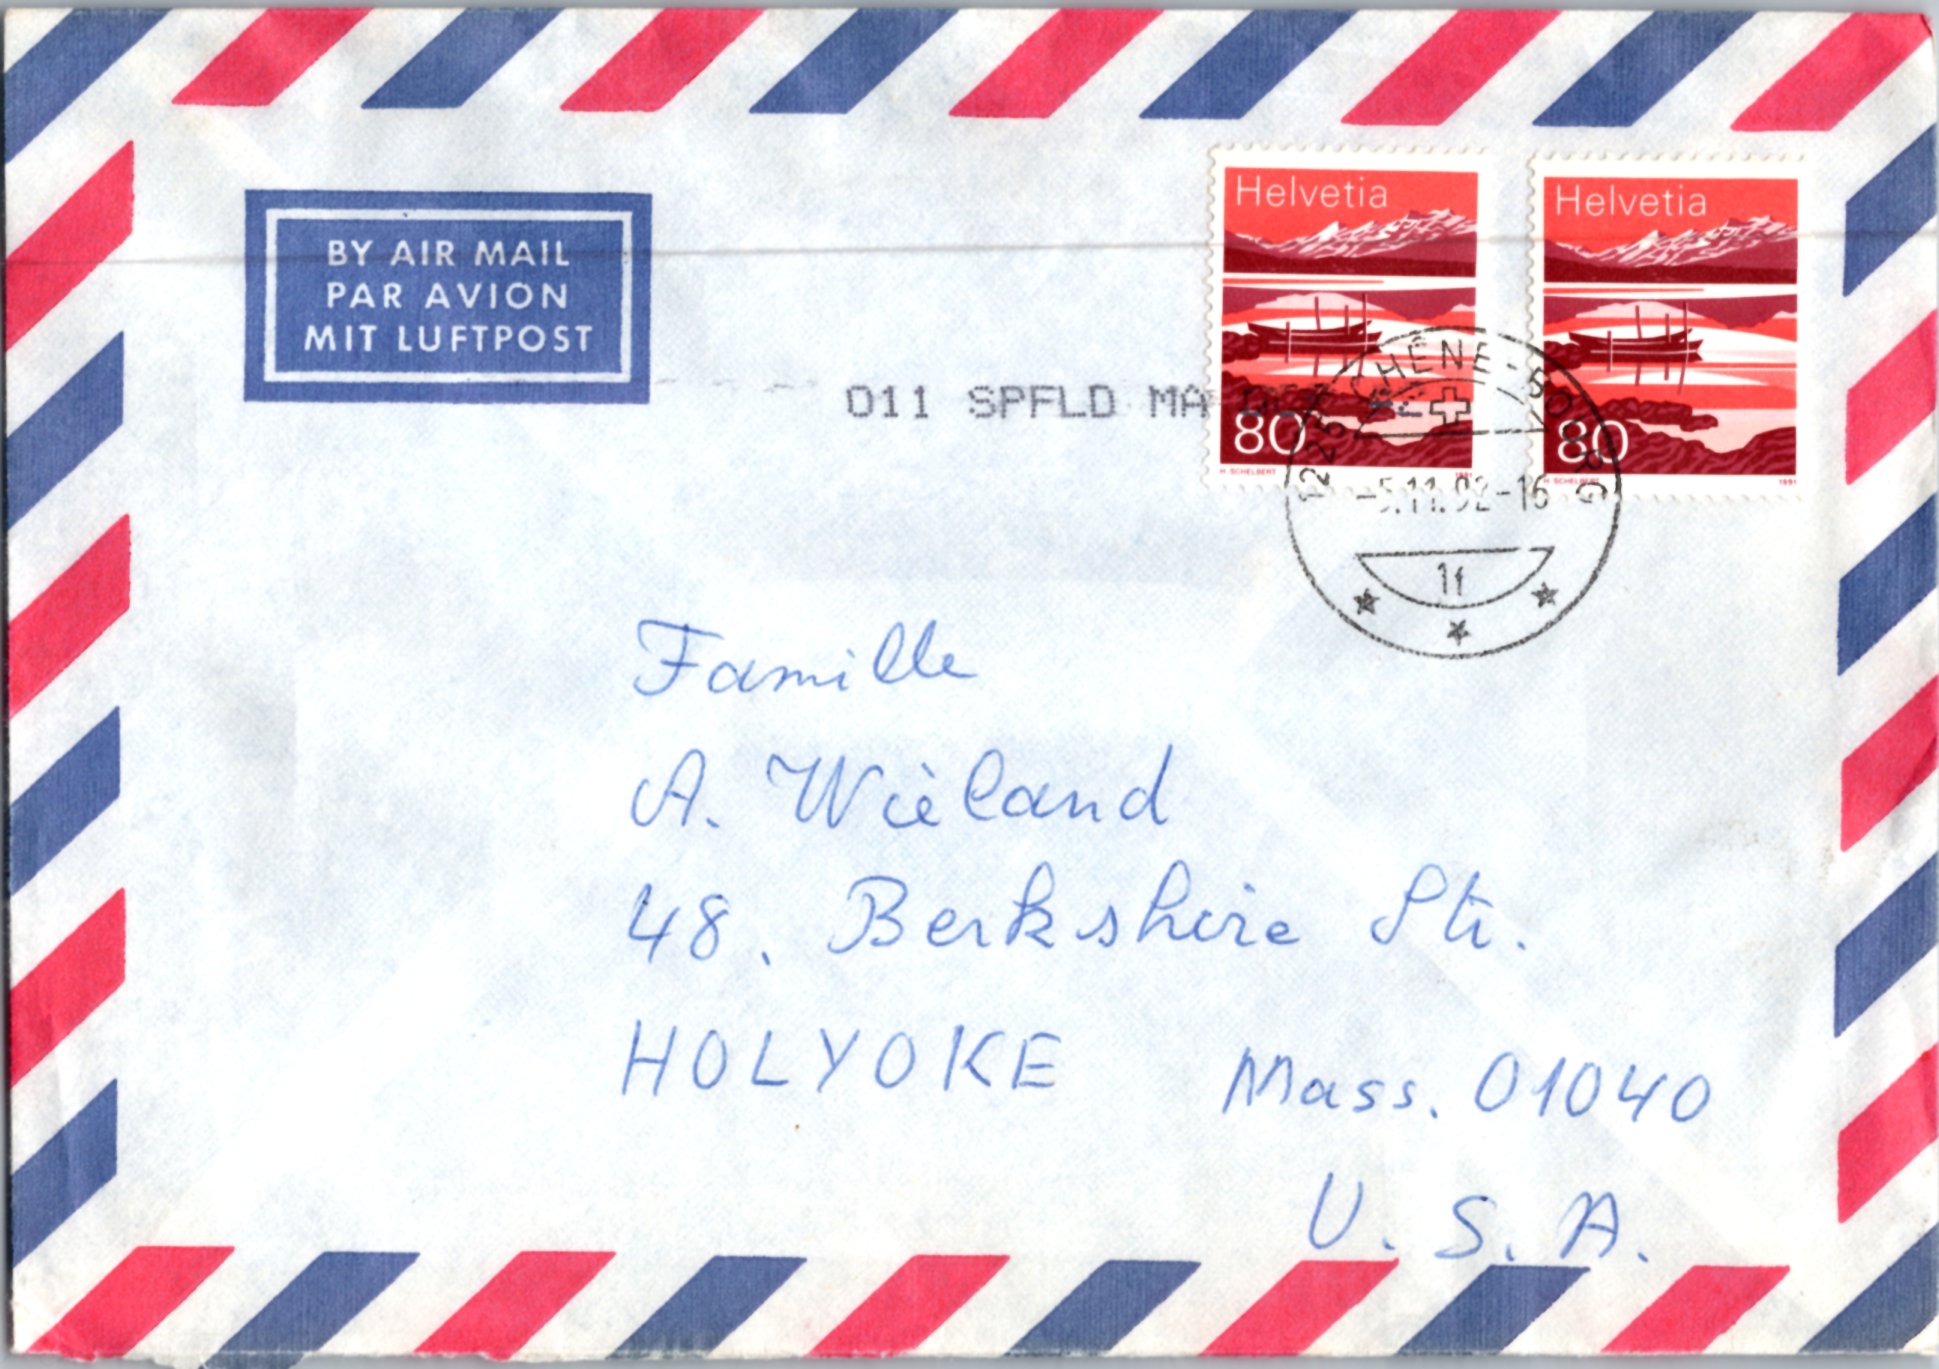 BY AIR MAIL
PAR AVION
MIT LUFTPOST
Helvetia
80
H. SCHELBERT 1991
Helvetia
80
H. SCHELBERT 1991
011 SPFLD MA
1225 CHÊNE-BOURG
-5.11.92-16
1f
Famille
A. Wieland
48. Berkshire Str.
HOLYOKE Mass. 01040
U.S.A.